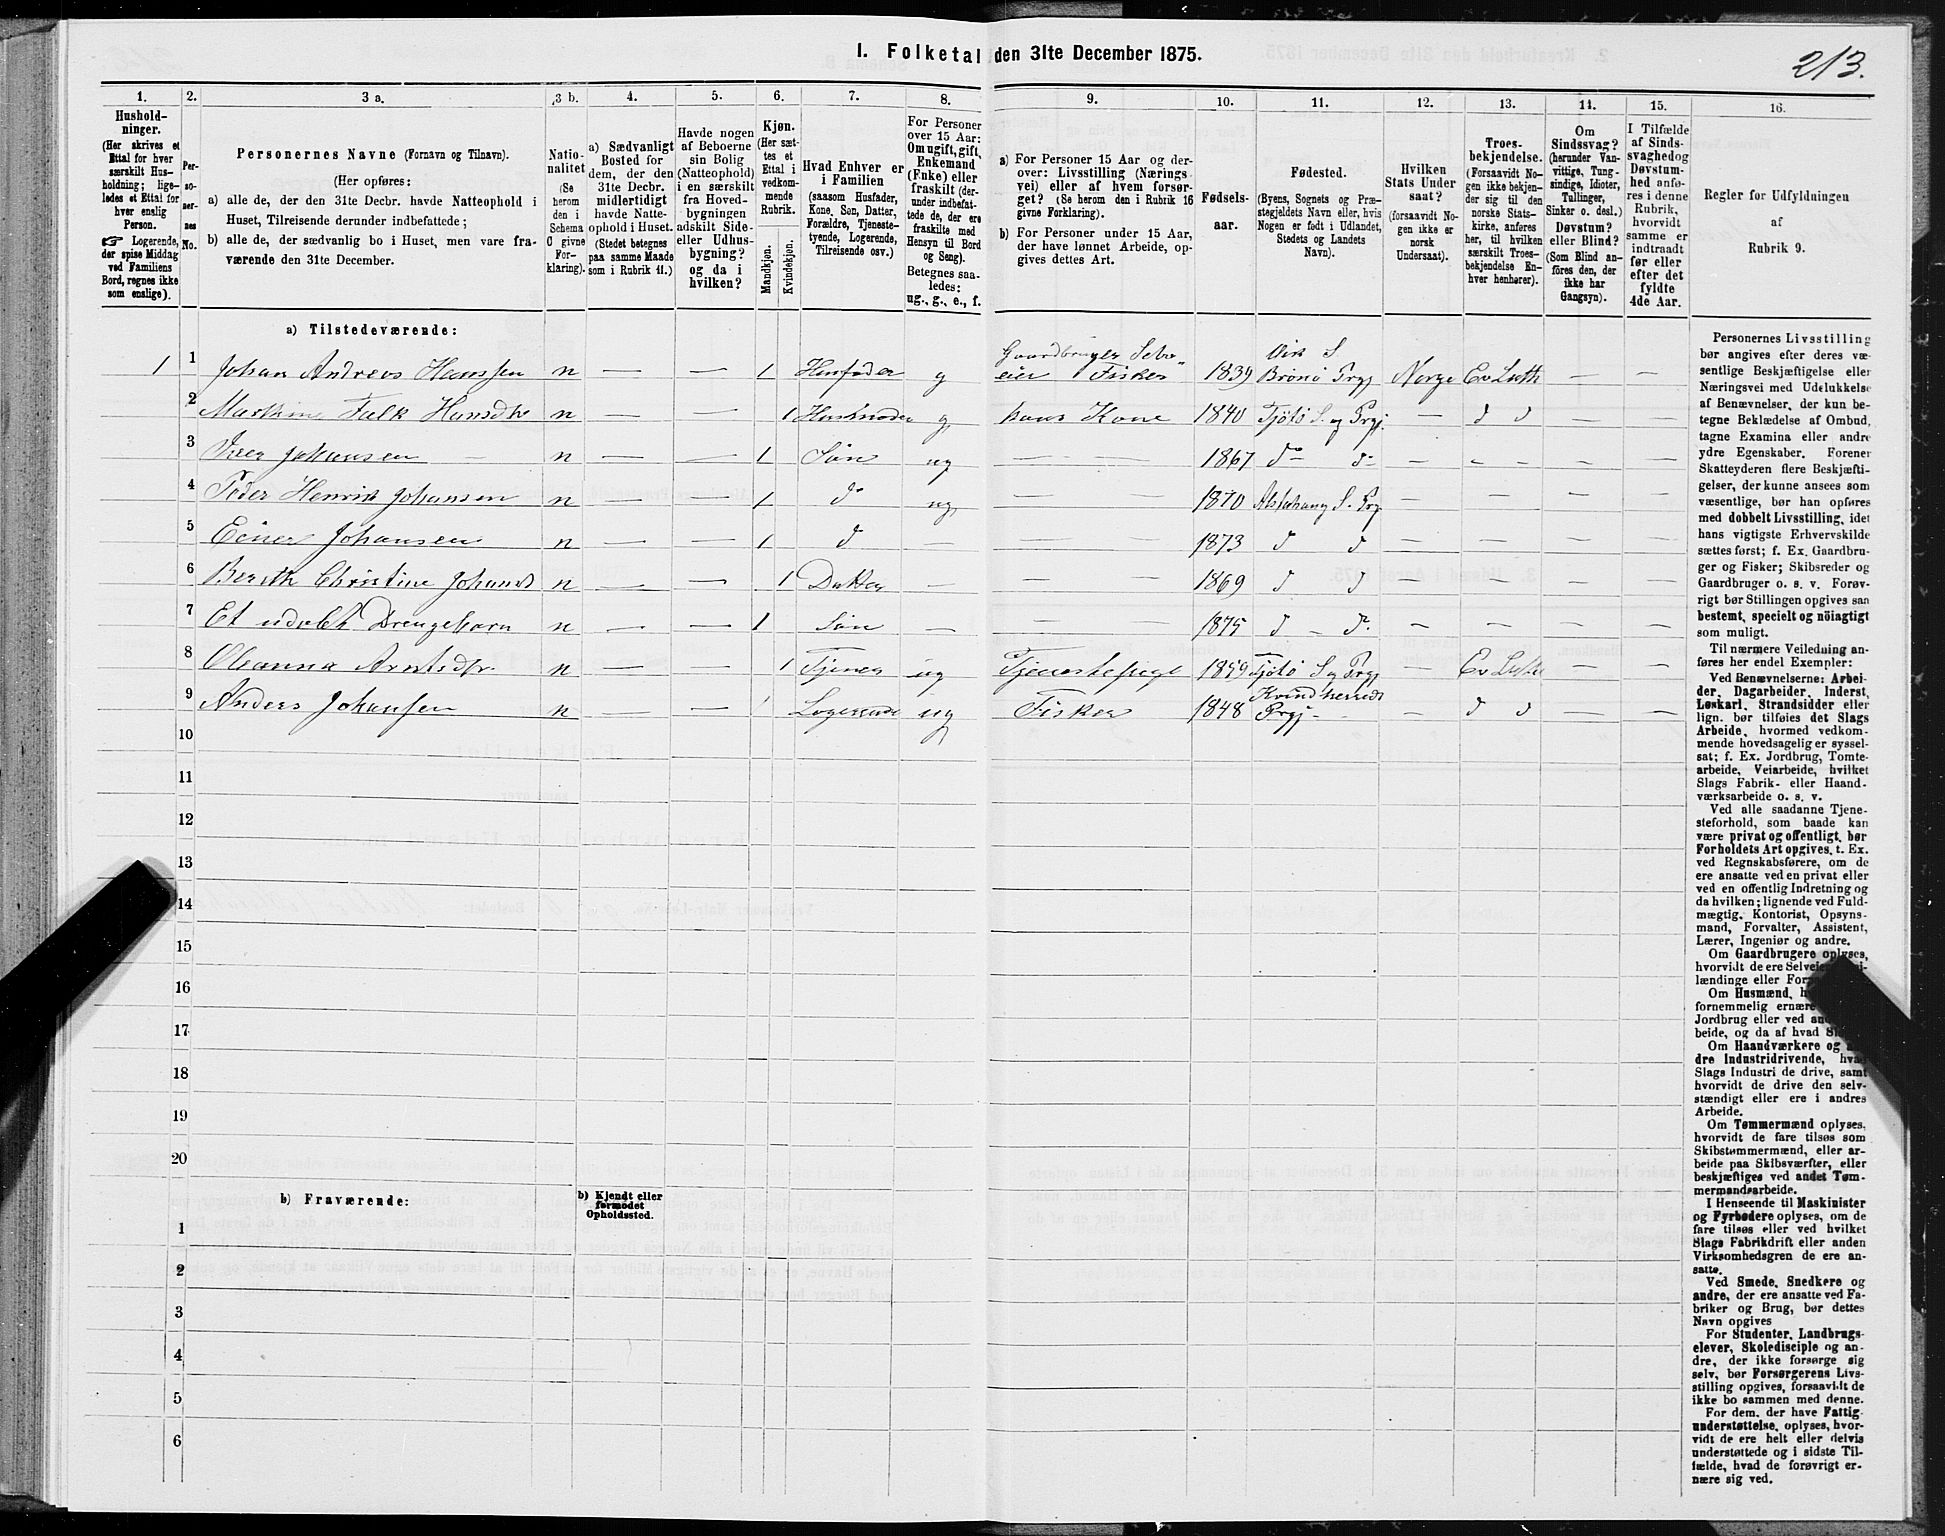 I. Folketal den 31te December 1875.
213.
1. 2. 3 a. 3 b. 4. 5. 6. 7. 8. 9. 10. 11. 12. 13. 14. 15. 16.
Hushold-
ninger.
(Her skrives et
Ettal for hver
særskilt Hus-
holdning; lige-
ledes et Ettal for
hver enslig
Person.
☞ Logerende,
der spise Middag
ved Familiens
Bord, regnes ikke
som enslige).
Per-
so-
ner-
nes
No.
Personernes Navne (Fornavn og Tilnavn).
(Her opføres:
a) alle de, der den 31te Decbr. havde Natteophold i
Huset, Tilreisende derunder indbefattede;
b) alle de, der sædvanlig bo i Huset, men vare fra-
værende den 31te December.
Natio-
nalitet
(Se
herom
den i
Schema
C givne
For-
klaring).
a) Sædvanligt
Bosted for
dem, der den
31te Decbr.
midlertidigt
havde Natte-
ophold i Huset.
(Stedet betegnes
paa samme Maade
som i Rubrik 11.)
Havde nogen
af Beboerne
sin Bolig
(Natteophold)
i en særskilt
fra Hoved-
bygningen
adskilt Side-
eller Udhus-
bygning?
og da i
hvilken?
Kjøn.
(Her sæt-
tes et
Ettal i
vedkom-
mende
Rubrik.
Mandkjøn.
Kvindekjøn.
Hvad Enhver er
i Familien
(saasom Husfader,
Kone, Søn, Datter,
Forældre, Tjeneste-
tyende, Logerende,
Tilreisende osv.)
For Personer
over 15 Aar:
Om ugift, gift,
Enkemand
(Enke) eller
fraskilt (der-
under indbefat-
tede de, der ere
fraskilte med
Hensyn til Bord
og Seng).
Betegnes saa-
ledes:
ug., g., e., f.
a) For Personer 15 Aar og der-
over: Livsstilling (Nærings-
vei) eller af hvem forsør-
get? (Se herom den i Rubrik 16
givne Forklaring).
b) For Personer under 15 Aar,
der have lønnet Arbeide, op-
gives dettes Art.
Fødsels-
aar.
Fødested.
(Byens, Sognets og Præ-
stegjeldets Navn eller, hvis
Nogen er født i Udlandet,
Stedets og Landets
Navn).
Hvilken
Stats Under
saat?
(forsaavidt No-
gen ikke er
norsk
Undersaat).
Troes-
bekjendelse.
(Forsaavidt No-
gen ikke bekjen-
der sig til den
norske Stats-
kirke, anføres
her, til hvilken
særskilt Troes-
bekjendelse En-
hver henhører).
Om
Sindssvag?
(herunder Van-
vittige, Tung-
sindige, Idioter,
Tullinger,
Sinker o. desl.)
Døvstum?
eller Blind?
(Som Blind an-
føres den, der
ikke har
Gangsyn).
I Tilfælde
af Sinds-
svaghed og
Døvstum-
hed anfø-
res i denne
Rubrik,
hvorvidt
samme er
indtraadt
før eller
efter det
fyldte
4de Aar.
Regler for Udfyldningen
af
Rubrik 9.
a) Tilstedeværende:
1 1 Johan Andreas Hanssen n — — 1 Husfader g Gaardbruger Selv-
eier Fisker 1839 Vik S.
Brønø Prgj Norge Ev Luth — —
2 Martine Falk Hansdtr n — — 1 Husmoder g hans Kone 1840 Tjøtø S. og Prgj. — d d — —
3 Iver Johansen n — — 1 Søn ug — 1867 do do — — — —
4 Peder Henrik Johansen n — — 1 do ug — 1870 Alstahaug S. Prgj — — — —
5 Einer Johansen n — — 1 d — — 1873 d d — — — —
6 Berith Christine Johansd n — — 1 Datter — — 1869 d d — — — —
7 Et udøbt Drengebarn n — — 1 Søn — — 1875 d — do — — — —
8 Oleanna Arntsdtr. n — — 1 Tjener ug Tjenestepige 1859 Tjøtø S og Prgj — Ev Luth — —
9 Anders Johansen n — — 1 Logerende ug Fisker 1848 Kvindherreds
Prgj — — d d — —
10
11
12
13
14
15
16
17
18
19
20
b) Fraværende:
b) Kjendt eller
formodet
Opholdssted.
1
2
3
4
5
6
Personernes Livsstilling
bør angives efter deres væ-
sentlige Beskjæftigelse eller
Næringsvei med Udelukkelse
af Benævnelser, der kun be-
tegne Beklædelse af Ombud,
tagne Examina eller andre
ydre Egenskaber. Forener
Skatteyderen flere Beskjæfti-
gelser, der kunne ansees som
væsentlige, bør han opføres
med dobbelt Livsstilling, idet
hans vigtigste Erhvervskilde
sættes først; f. Ex. Gaardbru-
ger og Fisker; Skibsreder og
Gaardbruger o. s. v. Forøv-
rigt bør Stillingen opgives saa
bestemt, specielt og nöiagtigt
som muligt.
Til nærmere Veiledning an-
føres her endel Exempler:
Ved Benævnelserne: Arbei-
der, Dagarbeider, Inderst,
Løskarl, Strandsidder eller
lign. bør tilføies det Slags
Arbeide, hvormed vedkom-
mende hovedsagelig er syssel-
sat; f. Ex. Jordbrug, Tomte-
arbeide, Veiarbeide, hvilket
Slags Fabrik- eller Haand-
værksarbeide o. s. v.
Ved alle saadanne Tjene-
steforhold, som baade kan
være privat og offentligt, bør
Forholdets Art opgives, t. Ex.
ved Regnskabsførere, om de
ere ansatte ved en privat eller
ved en offentlig Indretning og
da hvilken; lignende ved Fuld-
mægtig, Kontorist, Opsyns-
mand, Forvalter, Assistent,
Lærer, Ingeniør og andre.
Om Gaardbrugere oplyses,
hvorvidt de ere
lændinge eller
Om Husmænd,
fornemmelig
Jordbrug eller ved
beide, og da af hvad
Om Haandværkere og
dre Industridrivende,
Slags Industri de drive, samt
hvorvidt de drive den selv-
stændigt eller ere i andres
Arbeide.
Om Tømmermænd oplyses,
hvorvidt de fare tilsøs som
Skibstømmermænd, eller ar-
beide paa Skibsværfter, eller
beskjæftiges ved andet Tøm-
mermandsarbeide.
I Henseende til Maskinister
og Fyrbødere oplyses, om de
fare tilsøs eller ved hvilket
Slags Fabrikdrift eller anden
Virksomhedsgren de ere an-
satte.
Ved Smede, Snedkere og
andre, der ere ansatte ved Fa-
briker og Brug, bør dettes
Navn opgives
For Studenter, Landbrugs-
elever, Skoledisciple og an-
dre, der ikke forsørge sig
selv, bør Forsørgerens Livs-
stilling opgives, forsaavidt de
ikke bo sammen med denne.
For dem, der have Fattig-
understøttelse, oplyses, hvor-
vidt de ere helt eller delvis
understøttede og i sidste Til-
fælde, hvad de forøvrigt er-
nære sig ved.